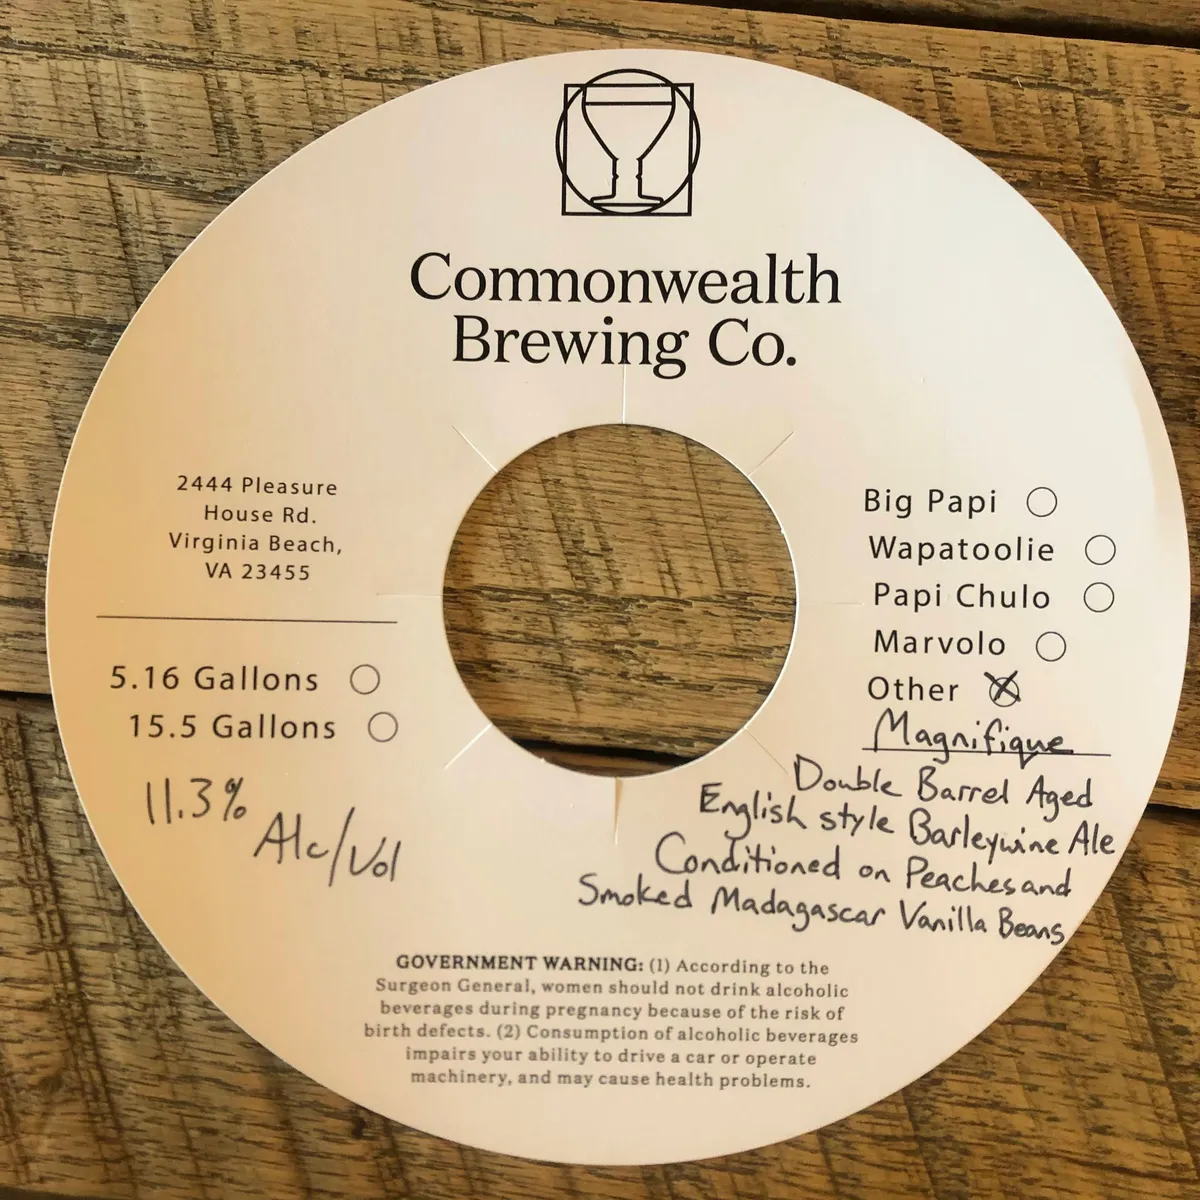 Commonwealth
Brewing Co.
2444 Pleasure
House Rd.
Virginia Beach,
VA 23455
5.16 Gallons
15.5 Gallons
11.3%
Alc/Vol
Big Papi
Wapatoolie
Papi Chulo
Marvolo
Other
Magnifique
Double Barrel Aged
English style Barleywine Ale
Conditioned on Peaches and
Smoked Madagascar Vanilla Beans
GOVERNMENT WARNING: (1) According to the
Surgeon General, women should not drink alcoholic
beverages during pregnancy because of the risk of
birth defects. (2) Consumption of alcoholic beverages
impairs your ability to drive a car or operate
machinery, and may cause health problems.